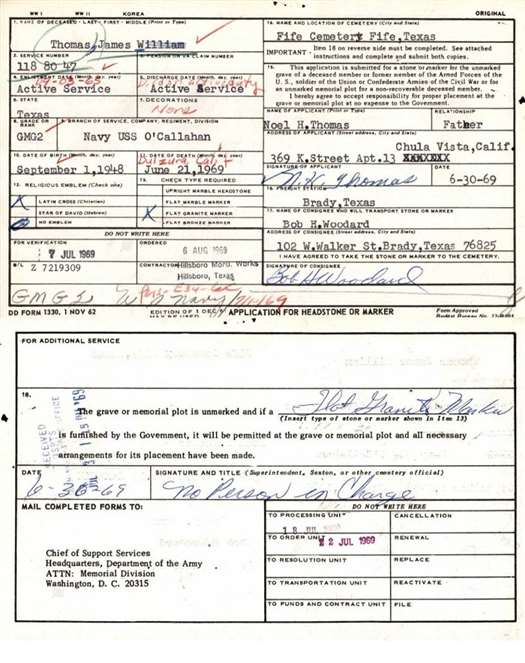 WW I WW II KOREA ORIGINAL
1. NAME OF DECEASED - LAST - FIRST - MIDDLE (Print or Type)
Thomas, James William
2. SERVICE NUMBER
PENSION OR VA CLAIM NUMBER
118 80 47
4. ENLISTMENT DATE
5. DISCHARGE DATE
Active Service
Active Service
6. STATE
7. DECORATIONS
Texas
None
8. GRADE OR RANK
9. BRANCH OF SERVICE, COMPANY, REGIMENT, DIVISION
GMG2
Navy USS O'Callahan
10. DATE OF BIRTH
11. DATE OF DEATH
September 1, 1948
June 21, 1969
12. RELIGIOUS EMBLEM (Check one)
13. CHECK TYPE REQUIRED
UPRIGHT MARBLE HEADSTONE
X LATIN CROSS (Christian)
FLAT MARBLE MARKER
STAR OF DAVID (Hebrew)
X FLAT GRANITE MARKER
NO EMBLEM
FLAT BRONZE MARKER
DO NOT WRITE HERE
FOR VERIFICATION
ORDERED
7 JUL 1969
6 AUG 1969
B/L Z 7219309
CONTRACTOR Hillsboro Monu. Works
Hillsboro, Texas
14. NAME AND LOCATION OF CEMETERY (City and State)
Fife Cemetery Fife, Texas
IMPORTANT - Item 18 on reverse side must be completed. See attached instructions and complete and submit both copies.
15. This application is submitted for a stone or marker for the unmarked grave of a deceased member or former member of the Armed Forces of the U.S., soldier of the Union or Confederate Armies of the Civil War or for an unmarked memorial plot for a non-recoverable deceased member.
I hereby agree to accept responsibility for proper placement at the grave or memorial plot at no expense to the Government.
NAME OF APPLICANT (Print or Type) RELATIONSHIP
Noel H. Thomas Father
ADDRESS OF APPLICANT (Street address, City and State)
Chula Vista, Calif.
369 K. Street Apt. 13 XXXXXXX
SIGNATURE OF APPLICANT DATE
N. H. Thomas 6-30-69
16. FREIGHT STATION
Brady, Texas
17. NAME OF CONSIGNEE WHO WILL TRANSPORT STONE OR MARKER
Bob H. Woodard
ADDRESS OF CONSIGNEE (Street address, City and State)
102 W. Walker St. Brady, Texas 76825
I HAVE AGREED TO TAKE THE STONE OR MARKER TO THE CEMETERY.
SIGNATURE OF CONSIGNEE
Bob H Woodard
GMG2 Navy
DD FORM 1330, 1 NOV 62
APPLICATION FOR HEADSTONE OR MARKER
Form Approved
FOR ADDITIONAL SERVICE
18.
The grave or memorial plot is unmarked and if a Flat Granite Marker
(Insert type of stone or marker shown in Item 13)
is furnished by the Government, it will be permitted at the grave or memorial plot and all necessary
arrangements for its placement have been made.
RECEIVED
DATE
6-30-69
SIGNATURE AND TITLE (Superintendent, Sexton, or other cemetery official)
No Person in Charge
MAIL COMPLETED FORMS TO:
Chief of Support Services
Headquarters, Department of the Army
ATTN: Memorial Division
Washington, D. C. 20315
DO NOT WRITE HERE
TO PROCESSING UNIT CANCELLATION
18 JUL
TO ORDER UNIT RENEWAL
2 JUL 1969
TO RESOLUTION UNIT REPLACE
TO TRANSPORTATION UNIT REACTIVATE
TO FUNDS AND CONTRACT UNIT FILE